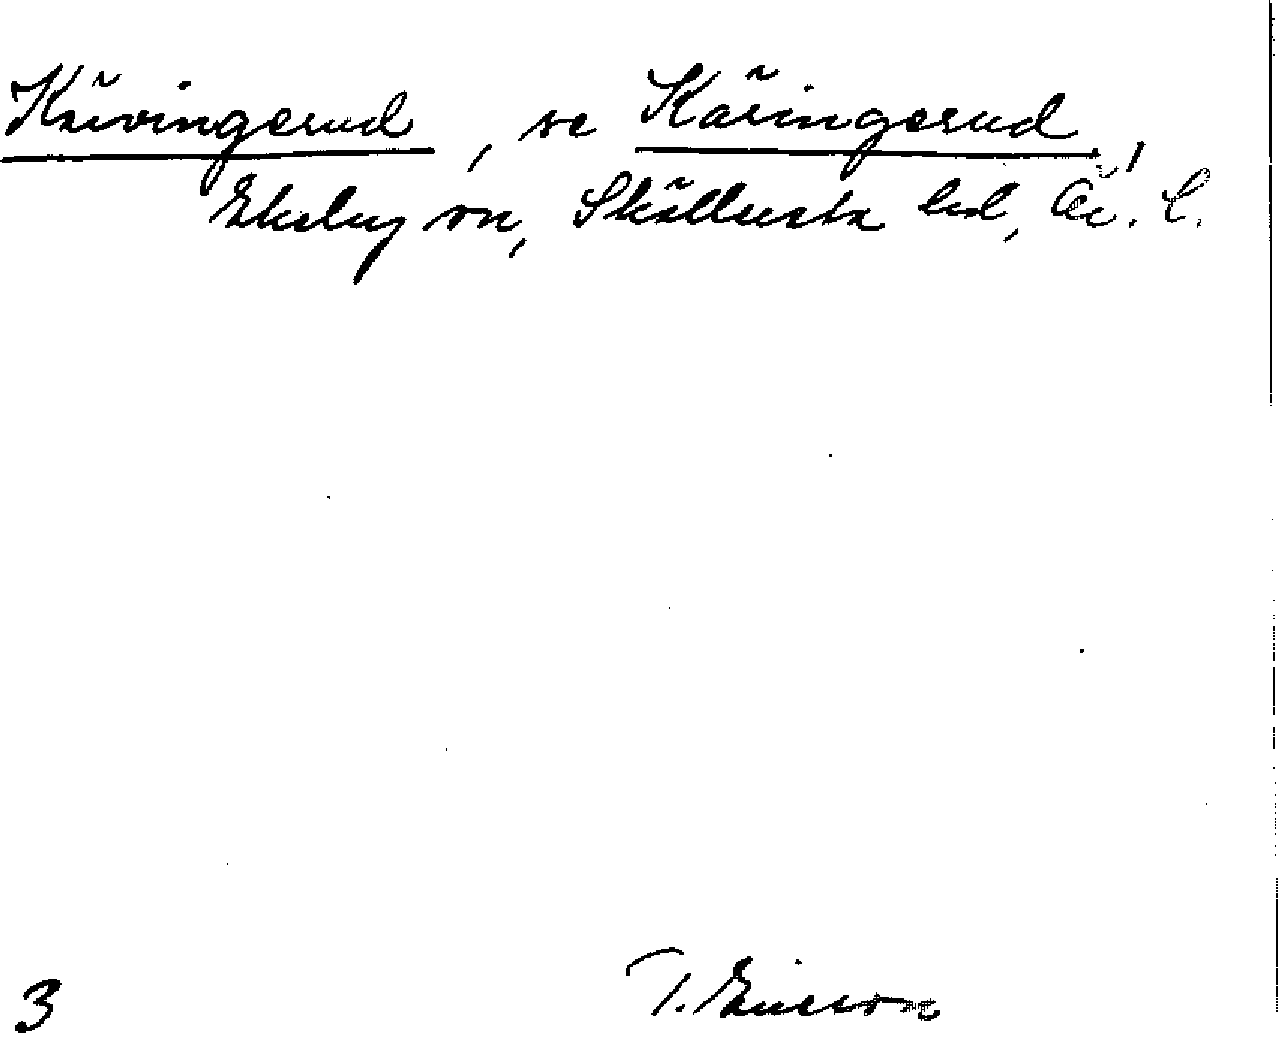 Kävingerud, se Käringerud,
Ekeby sn, Sköllersta hd, Ör. l.
3 T. Ericson